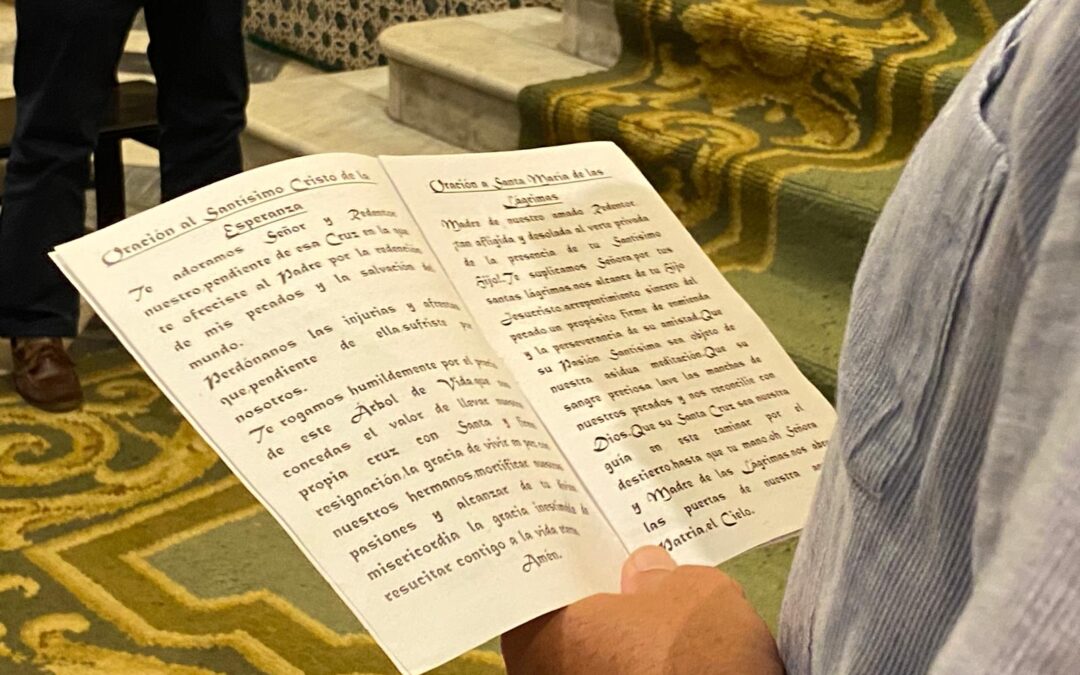 Oración al Santísimo Cristo de la
Esperanza
Te adoramos Señor y Redentor
nuestro,pendiente de esa Cruz en la que
te ofreciste al Padre por la redención
de mis pecados y la salvación del
mundo.
Perdónanos las injurias y afrentas
que,pendiente de ella,sufriste por
nosotros.
Te rogamos humildemente por el
de este Árbol de Vida,que nos
concedas el valor de llevar nuestra
propia cruz con Santa y firme
resignación,la gracia de vivir en paz con
nuestros hermanos,mortificar nuestras
pasiones y alcanzar de tu
misericordia la gracia inestimable de
resucitar contigo a la vida eterna
Amén.
Oración a Santa Maria de las
Lágrimas
Madre de nuestro amado Redentor,
tan afligida y desolada al verte privada
de la presencia de tu Santísimo
Hijo!.Te suplicamos Señora,por tus
santas lágrimas,nos alcance de tu Hijo
Jesucristo,arrepentimiento sincero del
pecado,un propósito firme de enmienda
y la perseverancia de su amistad.Que
su Pasión Santísima sea objeto de
nuestra asidua meditación.Que su
sangre preciosa lave las manchas de
nuestros pecados y nos reconcilie con
Dios.Que su Santa Cruz sea nuestra
guía en este caminar por el
destierro,hasta que tu mano,oh Señora
y Madre de las Lágrimas,nos abra
las puertas de nuestra
Patria,el Cielo.